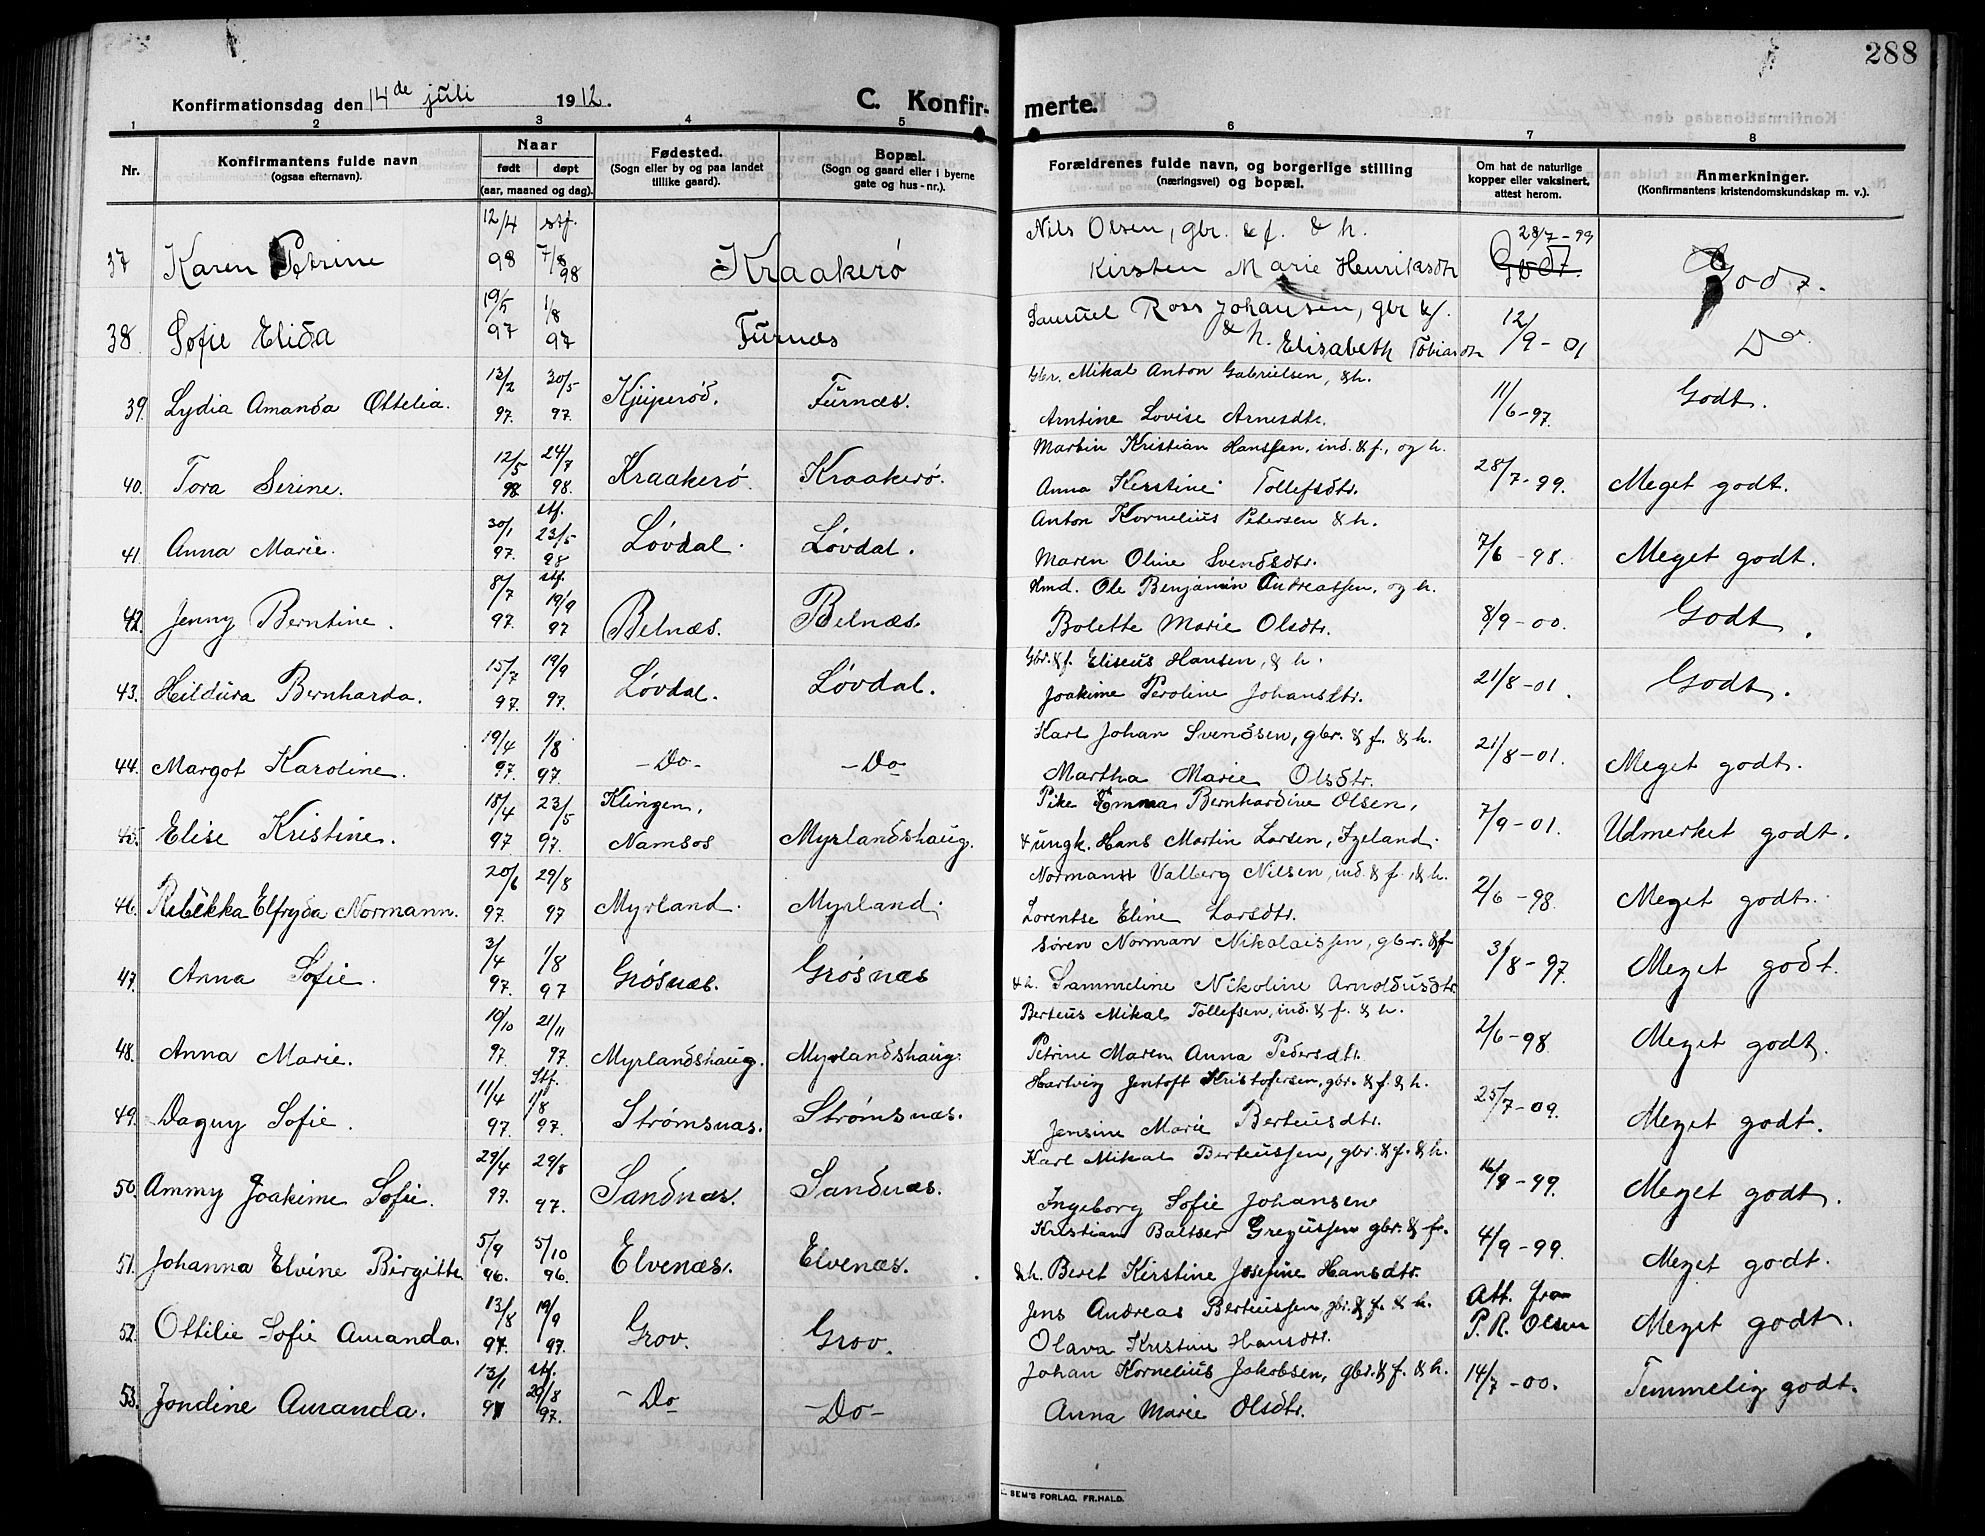 288
Konfirmationsdag den 14de juli 1912.
C. Konfirmerte.
1 2 3 4 5 6 7 8
Nr. Konfirmantens fulde navn (ogsaa efternavn). Naar født døpt (aar, maaned og dag). Fødested. (Sogn eller by og paa landet tillike gaard). Bopæl. (Sogn og gaard eller i byerne gate og hus-nr.). Forældrenes fulde navn, og borgerlige stilling (næringsvei) og bopæl. Om hat de naturlige kopper eller vaksinert, attest herom. Anmerkninger. (Konfirmantens kristendomskundskap m. v.).
37 Karen Petrine 12/4 98 stf. 7/8 98 Kraakerø Nils Olsen, gbr. & f. & h. Kirsten Marie Henriksdtr 28/7-99 Godt.
38 Sofie Elida 19/5 97 1/8 97 Furnæs Samuel Ross Johansen, gbr & f. & h. Elisabeth Tobiasdtr 12/9-01 Do
39. Lydia Amanda Ottelia. 13/2 97. 30/5 97. Kjeiperød. Furnæs. Gbr. Mikal Anton Gabrielsen, & h. Arntine Lovise Arnesdtr. 11/6-97. Godt.
40. Tora Serine. 12/5 98 24/7 98. Kraakerø. Kraakerø. Martin Kristian Hanssen, ind. & f., og h. Anna Kirstine Tollefsdtr. 28/7-99. Meget godt.
41. Anna Marie. 30/1 97. stf. 23/5 98 Løvdal. Løvdal. Anton Kornelius Petersen & h. Maren Oline Svendsdtr. 7/6-98. Meget godt.
42. Jenny Berntine. 8/7 97. stf. 19/9 97 Belnæs. Belnæs. Hmd. Ole Benjamin Andreassen, og h. Bolette Marie Olsdtr. 8/9-00. Godt.
43. Hildura Bernharda. 15/7 97. 19/9 97. Løvdal. Løvdal. Gbr. & f. Eliseus Hansen, & h. Joakime Peroline Johansdtr. 21/8-01. Godt.
44. Margot Karoline. 19/4 97. 1/8 97. -Do- -Do- Karl Johan Svendsen, gbr. & f. & h. Martha Marie Olsdtr. 21/8-01. Meget godt.
45. Elise Kristine. 18/4 97 23/5 97. Klingen, Namsos Myrlandshaug. Pike Emma Bernhardine Olsen, & ungk. Hans Martin Larsen, Izeland. 7/9-01. Udmerket godt.
46. Rebekka Elfryda Normann. 20/6 97. 29/8 97 Myrland. Myrland. Normann Valberg Nilsen, ind. & f., & h. Lorentse Eline Larsdtr. 2/6-98. Meget godt.
47. Anna Sofie. 3/4 97. 1/8 97 Grøsnæs. Grøsnæs Søren Norman Nikolaissen, gbr. & f & h. Sammeline Nikoline Arnoldusdtr. 3/8-97. Meget godt.
48. Anna Marie. 10/10 97 21/11 97. Myrlandshaug. Myrlandshaug. Berteus Mikal Tollefsen, ind. & f. & h. Petrine Maren Anna Pedersdtr. 2/6-98 Meget godt.
49. Dagny Sofie. 11/4 97. Stf. 1/8 97. Strømsnæs. Strømsnæs. Hartvig Jentoft Kristofersen, gbr. & f. & h. Jensine Marie Berteusdtr. 25/7-09. Meget godt.
50. Ammy Joakime Sofie. 29/4 97. 29/8 97. Sandnæs. Sandnæs. Karl Mikal Berteussen, gbr. & f. & h. Ingeborg Sofie Johansen 16/9-99. Meget godt.
51. Johanna Elvine Birgitte 5/9 96. 5/10 96. Elvenæs. Elvenæs. Kristian Baltser Gregussen gbr. & f. & h. Beret Kirstine Josefine Hansdtr. 4/9-99. Meget godt.
52. Ottilie Sofie Amanda. 13/8 97. 19/9 97. Grov. Grov. Jens Andreas Berteussen, gbr. & f. & h. Olava Kristine Hansdtr. Att. fra P. R. Olsen Meget godt.
53. Jondine Amanda. 13/1 97 stf. 29/8 97. -Do -Do- Johan Kornelius Jakobsen, gbr. & f. & h. Anna Marie Olsdtr. 14/7-00. Temmelig godt.
SEM'S FORLAG, FR.HALD.